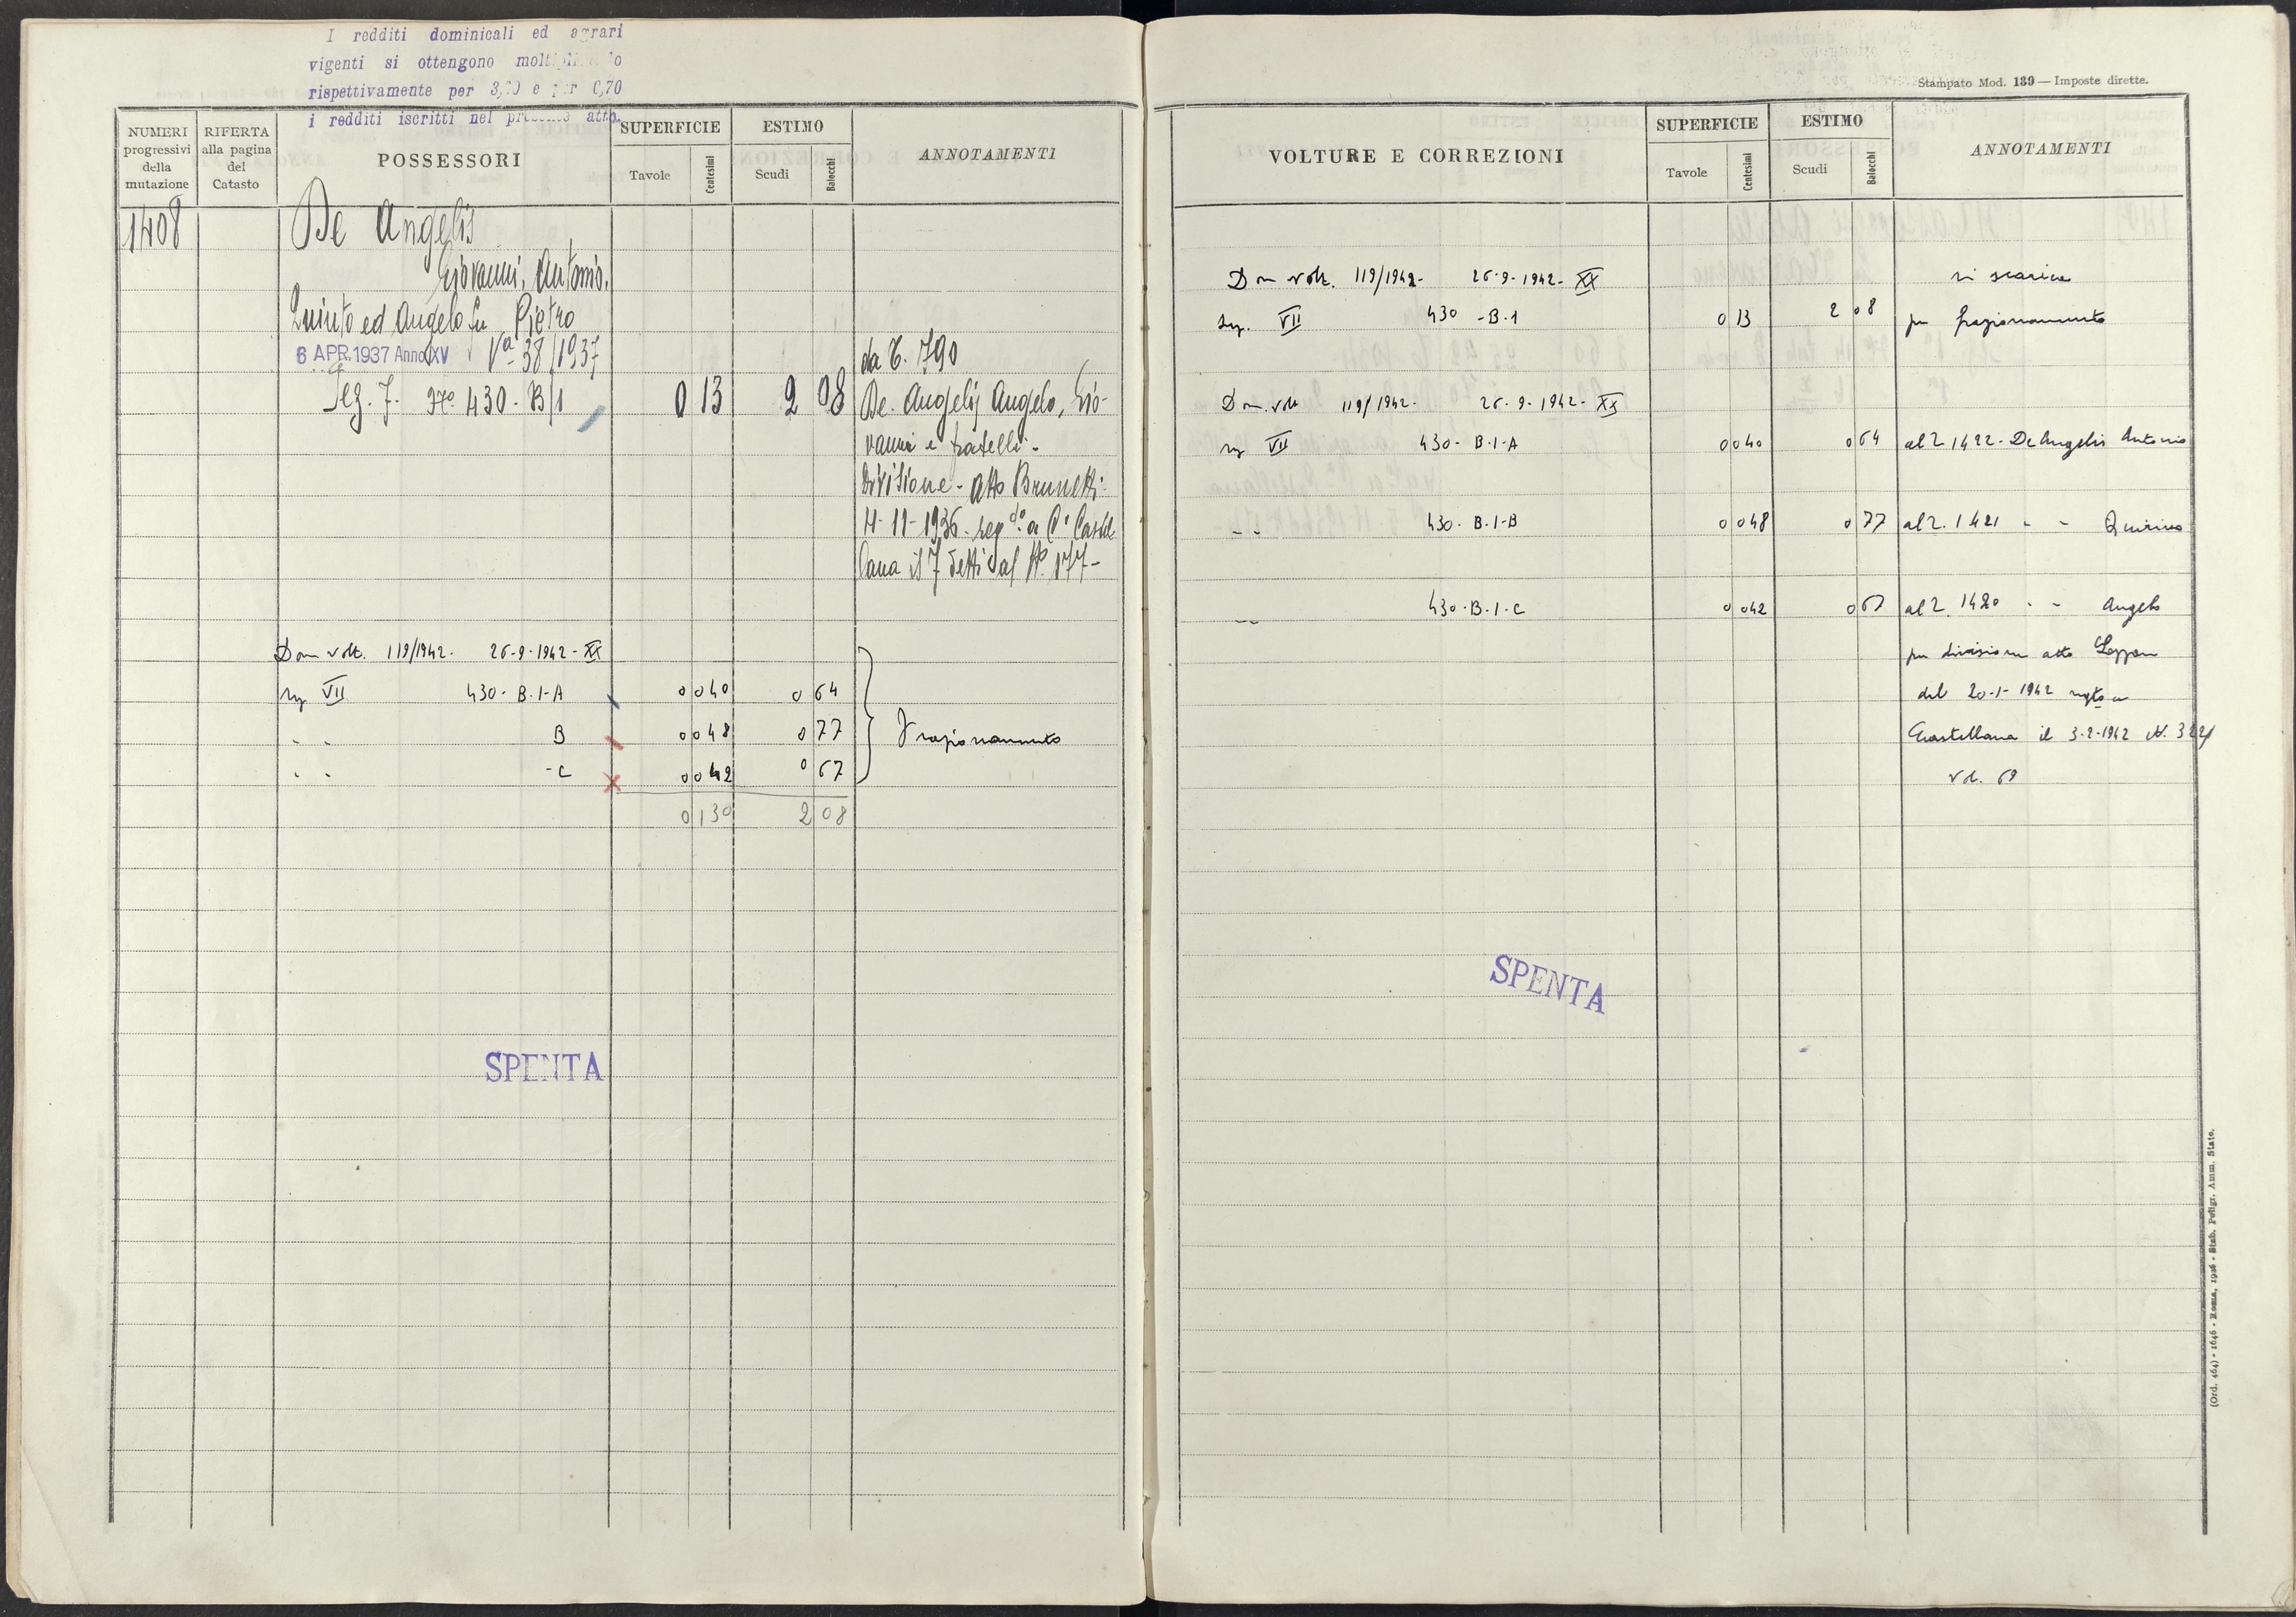 I redditi dominicali ed agrari
vigenti si ottengono moltiplicando
rispettivamente per 3,70 e per 0,70
i redditi iscritti nel presente atto.
NUMERI progressivi della mutazione
RIFERTA alla pagina del Catasto
POSSESSORI
SUPERFICIE
Tavole Centesimi
ESTIMO
Scudi Baiocchi
ANNOTAMENTI
1408
De Angelis
Giovanni, Antonio,
Quinto ed Angelo fu Pietro
6 APR. 1937 Anno XV Va 38/1937
da C. 790
Seg. 7. No 430 - B/1 0 13 2 08 De Angelis Angelo, Gio-
vanni e fratelli -
Divisione - Atto Brunetti
4-11-1936 - regdo a Ca Castel
lana il 7 detti al No 177 -
Dom volt. 119/1942 - 26-9-1942 - XX
sez VII 430 - B - 1 - A 0 040 0 64
" " B 0 048 0 77 Frazionamento
" " - C 0 042 0 67
0 130 2 08
SPENTA
Stampato Mod. 139 — Imposte dirette.
VOLTURE E CORREZIONI
SUPERFICIE
Tavole Centesimi
ESTIMO
Scudi Baiocchi
ANNOTAMENTI
Dom volt. 119/1942 - 26-9-1942 - XX si scarica
sez. VII 430 - B - 1 0 13 2 08 per frazionamento
Dom. volt 119/1942 - 26-9-1942 - XX
sez VII 430 - B - 1 - A 0 040 0 64 al 2 1422 - De Angelis Antonio
" " 430 - B - 1 - B 0 048 0 77 al 2. 1421 " " Quirino
" " 430 - B - 1 - C 0 042 0 67 al 2. 1420 " " Angelo
per divisione atto
del 20-1-1942 regto a
Castellana il 3-2-1942 N. 322
vol. 69
SPENTA
(Ord. 464) - 1646 - Roma, 1936 - Stab. Poligr. Amm. Stato.